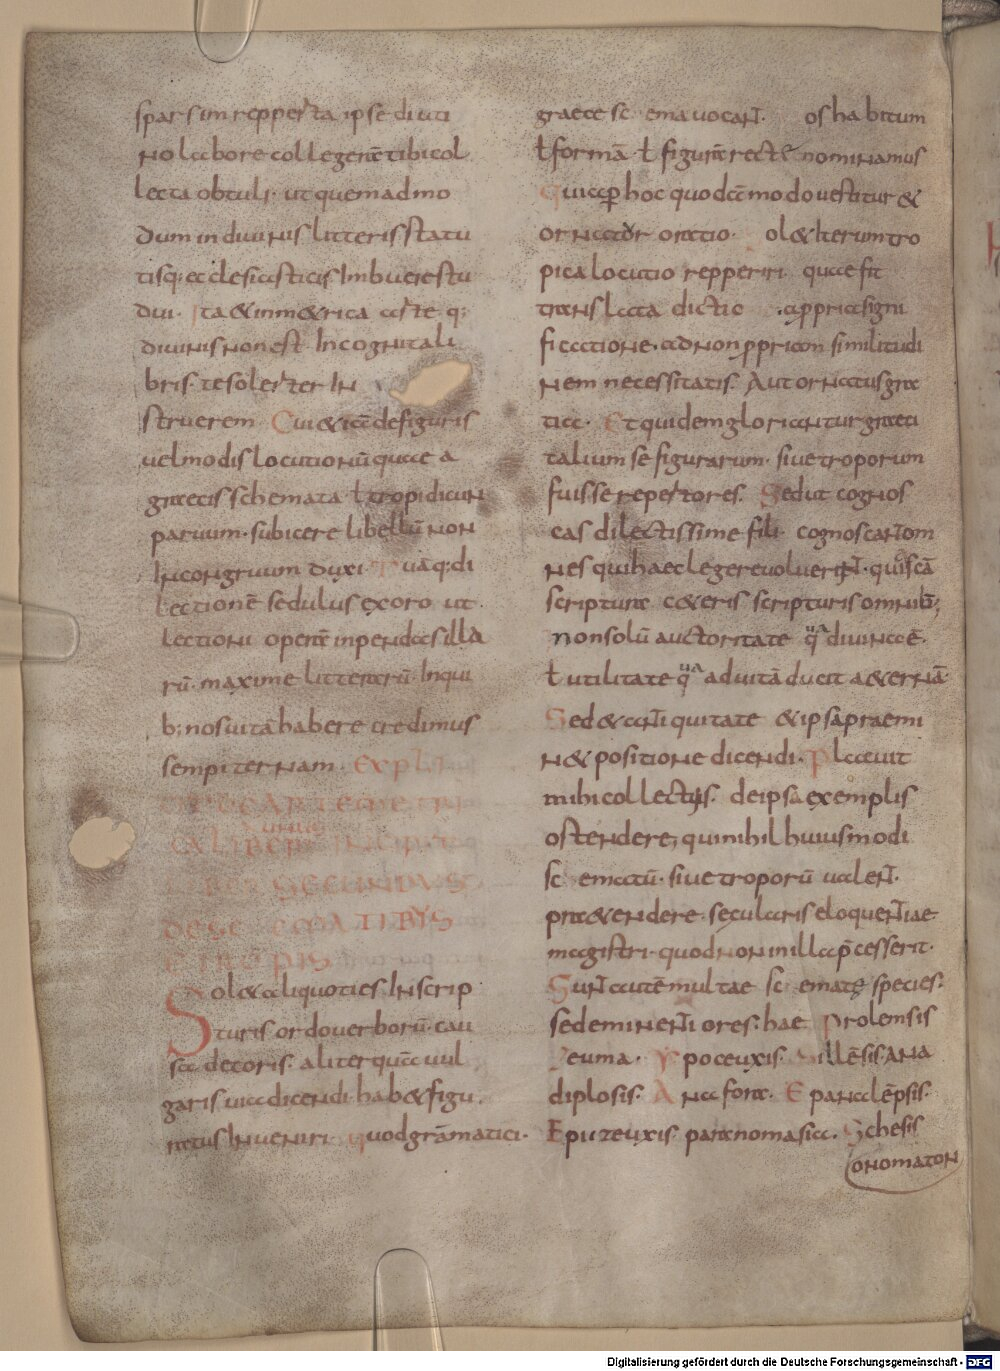 sparsim repperta ipse diuti
no labore collegeratibi col
lecta obtuli· ut quemadmo
dum in diuinis litteris statu
tisq; ecclesiasticis Imbuere stu
dui· Ita & in m&rica arte q;
diuinis non est Incognita li
bris· te solerter In
struerem Cui &iā de figuris
uel modis locutionū quae a
graecis schemata ł tropi dicun
paruum· subicere libellū non
Incongruum duxi· Tuāq; di
lectionē sedulus exoro ut
lectioni operā inpendas illa
rū· maxime litterarū· Inqui
b; nos uitā habere credimus
sempiternam· Expli
LIBER SECUNDUS
DE SC EMATIBUS
ET TROPIS
Sol& aliquoties In scrip
turis ordo uerborū cau
sa decoris· aliter quā uul
garis uia dicendi hab& figu
ratus Inueniri· quod grāmatici·
graece sc ema uocant· os habitum
ł formā ł figurā recte nominamus
Quia p hoc quodā modo uestitur &
ornatur oratio· ol& Iterum tro
pica locutio repperiri quae fit
translata dictio a ppria signi
ficatione· ad non ppriam similitudi
nem necessitatis· Aut ornatus gra
tia· Et quidem gloriantur graeci
talium se figurarum· siue troporum
fuisse repertores· Sed ut cognos
cas dilectissime fili cognoscant om
nes qui haec legere uoluerint· quiscā
scripturā ceteris scripturis omnib;
non solū auctoritate qua diuina ē·
ł utilitate qua ad uitā ducit a&ernā
Sed & antiquitate & ipsa praemi
n& positione dicendi· Placuit
mihi collectis· de ipsa exemplis
ostendere; qui nihil huiusmodi
sc ematū· siue troporū ualent·
pra&endere· secularis eloquentiae
magistri· quod non in illa pcesserit·
Sunt autē multae sc ematę species·
sed eminentiores· hae Prolemsis
Zeuma· Ypoceuxis· Sillēsis ana
diplosis· Anafora· Epanalēpsis·
Epizeuxis paranomasia· Schesis
onomaton
Digitalisierung gefördert durch die Deutsche Forschungsgemeinschaft - DFG